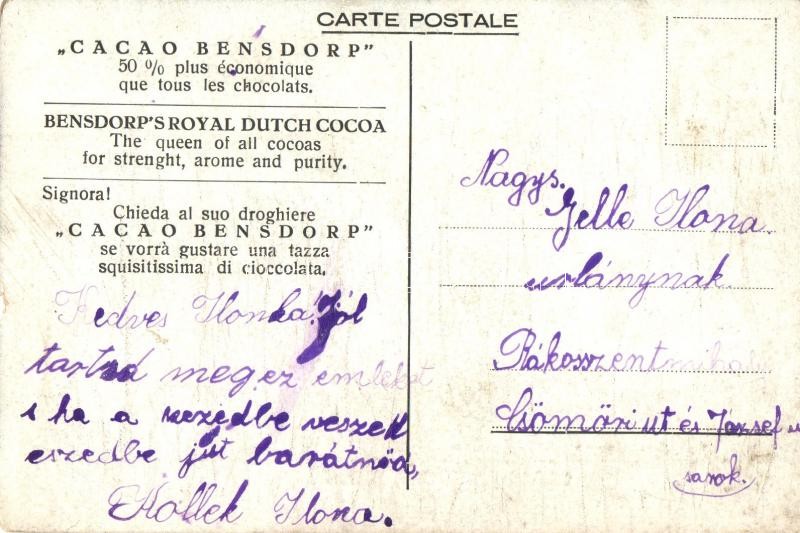 CARTE POSTALE
„CACAO BENSDORP"
50 % plus économique
que tous les chocolats.
BENSDORP'S ROYAL DUTCH COCOA
The queen of all cocoas
for strenght, arome and purity.
Signora!
Chieda al suo droghiere
„CACAO BENSDORP"
se vorrà gustare una tazza
squisitissima di cioccolata.
Kedves Ilonka! Jól
tartsd meg ez emléket
s ha a kezedbe veszed
eszedbe jut barátnőd,
Kollek Ilona.
Nagys.
Jelle Ilona
urlánynak
Rákosszentmihály
Csömöri ut és József u
sarok.